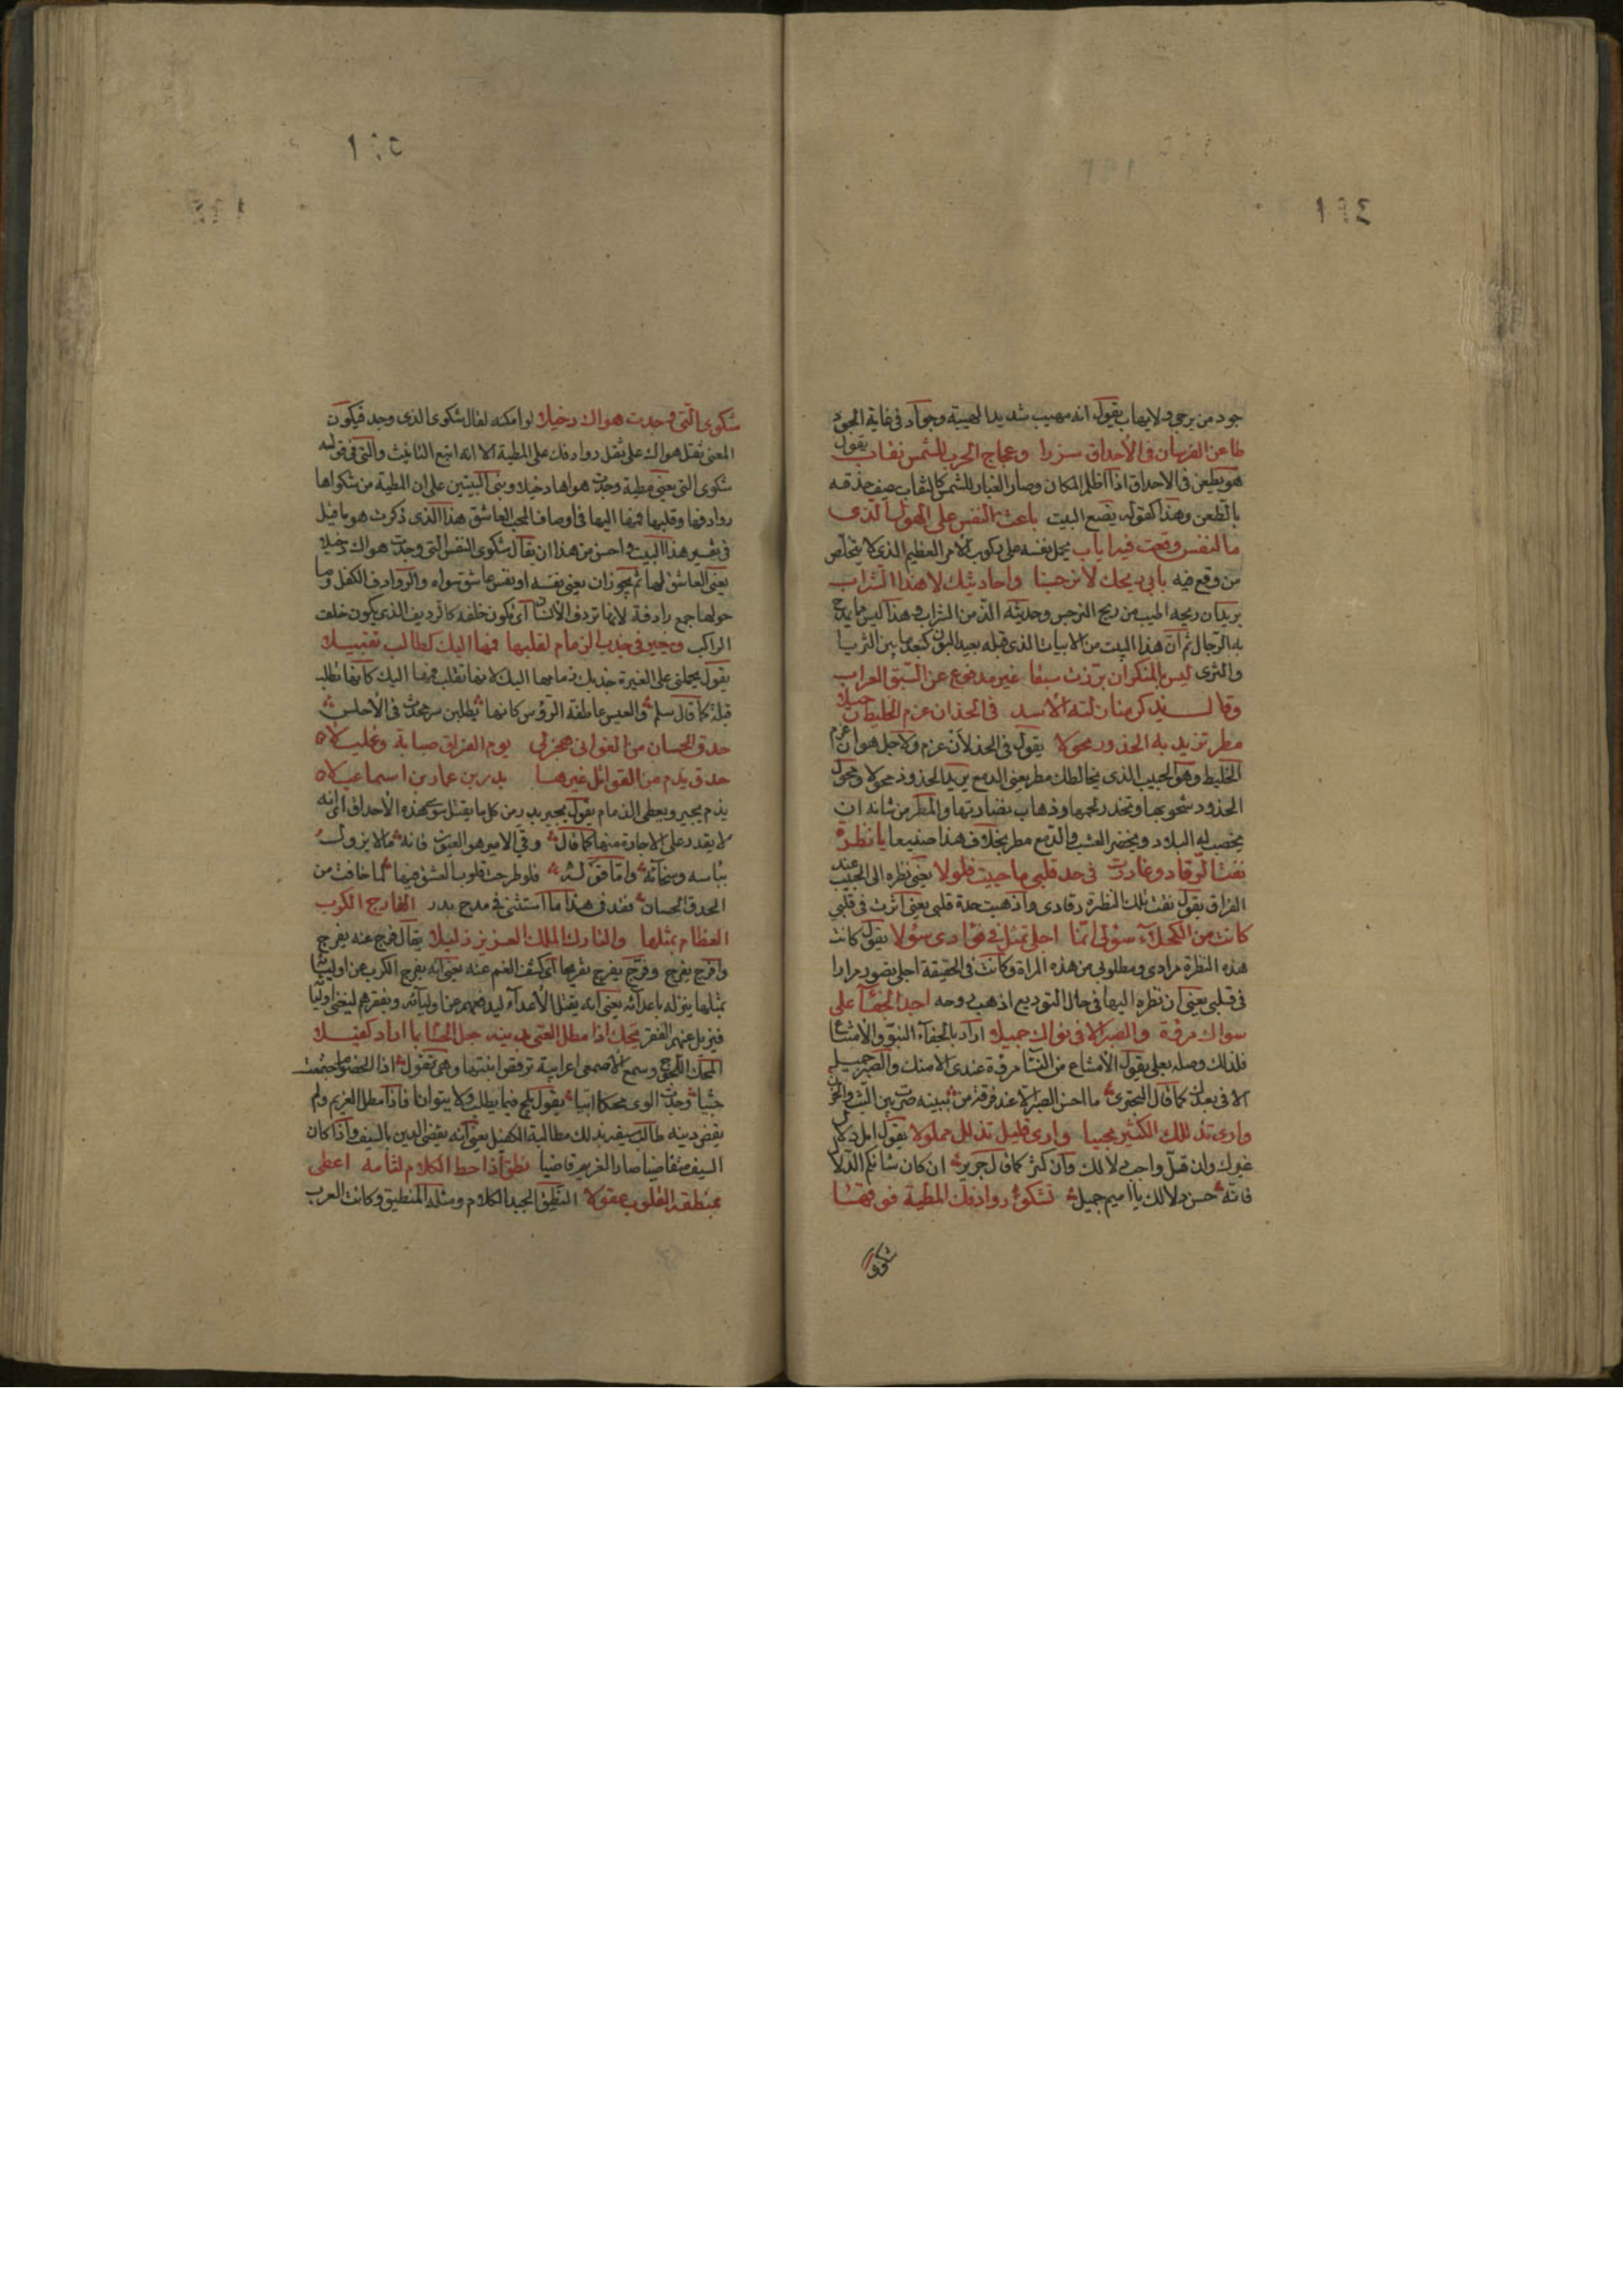 جود من يرجى ولا يهاب يقول انه مهيب شديد الهيبة وجواد في غاية الجود
طاعن الفرسان في الأحداق شزرا وعجاج الحرب للشمس نقاب يقول
هو يطعن في الاحداق اذا اظلم المكان وصار الغبار للشمس كالنقاب يصف حذقه
بالطعن وهذا كقوله يضع البيت باعث النفس على الهول الذي
ما لنفس وقعت فيه اياب يحمل نفسه على ركوب الامر العظيم الذي لا يتخلص
من وقع فيه بأبي ريحك لا نرجسنا واحاديثك لا هذا الشراب
يريد ان ريحه اطيب من ريح النرجس وحديثه الذ من الشراب وهذا ليس مما يمدح
به الرجال ثم ان هذا البيت من الابيات الذي قبله بعيد البون كبعد ما بين الثريا
والثرى ليس بالمنكر ان برزت سبقا غير مدفوع عن السبق العراب
وقال يذكر منازلته الأسد في الخد ان عزم الخليط رحيلا
مطر تزيد به الخدود محولا يقول في الخد لأن عزم ولاجل هو ان عزم
الخليط وهو الحبيب الذي يخالطك مطر يعني الدمع يزيد الخدود محولا ومحول
الخدود شحوبها وتخدد لحمها وذهاب نضارتها والمطر من شانه ان
يخصب له البلاد ويخضر العشب والدمع مطر بخلاف هذا صنيعا يا نظرة
نفت الرقاد وغادرت في حد قلبي ما حييت فلولا يعني نظره الى الحبيب عند
الفراق يقول نفت تلك النظرة رقادي واذهبت حدة قلبي يعني اثرت في قلبي
كانت من الكحلاء سؤلي انما اجلي تمثل في فؤادي سؤلا يقول كانت
هذه النظرة مرادي ومطلوبي من هذه المراة وكانت في الحقيقة اجلي تصور مرادا
في قلبي يعني ان نظره اليها في حال التوديع اذهب روحه اجد الجفاء على
سواك مروة والصبر الا في نواك جميلا اراد بالجفاء النبو والامتناع
فلذلك وصله بعلى يقول الامتناع من النساء مروة عندي الا منك والصبر جميل
الا في بعدك كما قال البحتري ما احسن الصبر الا عند فرقة من ببينه صرت بين البث والحزن
وارى تدللك الكثير محببا وارى قليل تدلل مملولا يقول امل دلال
غيرك وان قل واحب دلالك وان كثر كما قال جرير ان كان شانكم الدلال
فانه حسن دلالك يا اميم جميل تشكو روادفك المطية فوقها
شكوى
شكوى التي وجدت هواك دخيلا لو امكنه لقال شكوى الذي وجد فيكون
المعنى ثقل هواك على ثقل روادفك على المطية الا انه اتبع التانيث والتي في قوله
شكوى التي يعني مطية وجدت هواها دخيلا وبنى البيتين على ان المطية من شكواها
روادفها وقلبها فمها اليها في اوصاف المحب العاشق هذا الذي ذكرت هو ما قيل
في تفسير هذا البيت واحسن من هذا ان يقال شكوى النفس التي وجدت هواك دخيلا
يعني العاشق لها ثم يجوز ان يعني نفسه او نفس عاشق سواه والروادف الكفل وما
حولها جمع رادفة لانها تردف الانسان اي تكون خلفه كالرديف الذي يكون خلف
الراكب ويغيرني جذب الزمام لقلبها فمها اليك كطالب تقبيلا
يقول يحملني على الغيرة جذبك زمامها اليك لانها تقلب فمها اليك كانها تطلب
قبلة كما قال مسلم والعيس عاطفة الرؤس كانها يطلبن سر محدث في الأحلس
حدق الحسان من الغواني هجن لي يوم الفراق صبابة وغليلا
حدق يذم من القواتل غيرها بدر بن عمار بن اسماعيلا
يذم يجير ويعطي الذمام يقول يجير بدر من كل ما يقتل سوى هذه الأحداق اي انه
لا يقدر على الاجارة منها كما قال وقي الامير هوى العيون فانه ما لا يزول
بباسه وسخائه واما قوله فلو طرحت قلوب العشق فيها لما خافت من
الحدق الحسان فقد في هذا ما استثنى في مدح بدر الفارج الكرب
العظام بمثلها والتارك الملك العزيز ذليلا يقال فرج عنه يفرج
وافرج يفرج وفرج يفرج تفريجا اي كشف الغم عنه يعني انه يفرج الكرب عن اوليائه
بمثلها ينزله باعدائه يعني انه يقتل الأعداء ليدفعهم عن اوليائه ويفقرهم ليغني اولياءه
فيزيل عنهم الفقر محك اذا مطل الغريم بدينه جعل الحسام بما اراد كفيلا
المحك اللجوج وسمع الاصمعي اعرابية ترقص ابنتها وهي تقول اذا الخصوم اجتمعت
جثيا وجدت الوى محكا ابيا يقول يلج فيما يطلب ولا يتوانا فاذا مطل الغريم ولم
يقض دينه طالب سيفه بذلك مطالبة الكفيل يعني انه يقضي الدين بالسيف واذا كان
السيف متقاضيا صار الغريم قاضيا نطق اذا حط الكلام لثامه اعطى
بمنطقه القلوب عقولا النطق الجيد الكلام ومثله المنطيق وكانت العرب